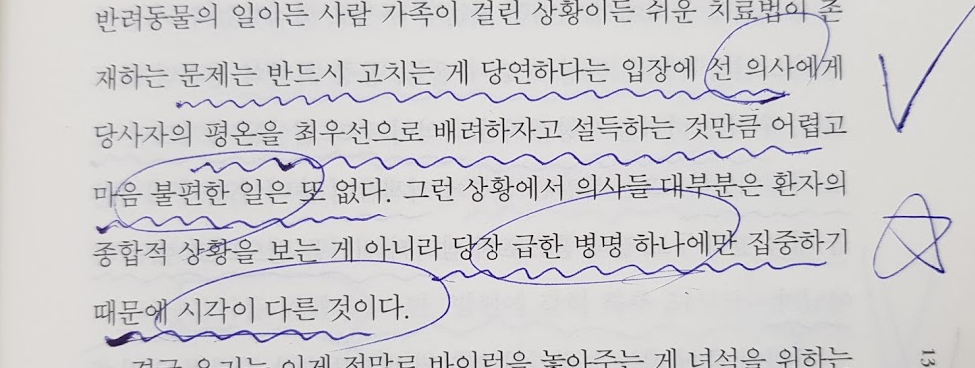 반려동물의 일이든 사람 가족이 걸린 상황이든 쉬운 치료법이 존
재하는 문제는 반드시 고치는 게 당연하다는 입장에 선 의사에게
당사자의 평온을 최우선으로 배려하자고 설득하는 것만큼 어렵고
마음 불편한 일은 또 없다. 그런 상황에서 의사들 대부분은 환자의
종합적 상황을 보는 게 아니라 당장 급한 병명 하나에만 집중하기
때문에 시각이 다른 것이다.
결국 우리는 이제 정말로 바이런을 놓아주는 게 녀석을 위하는
13